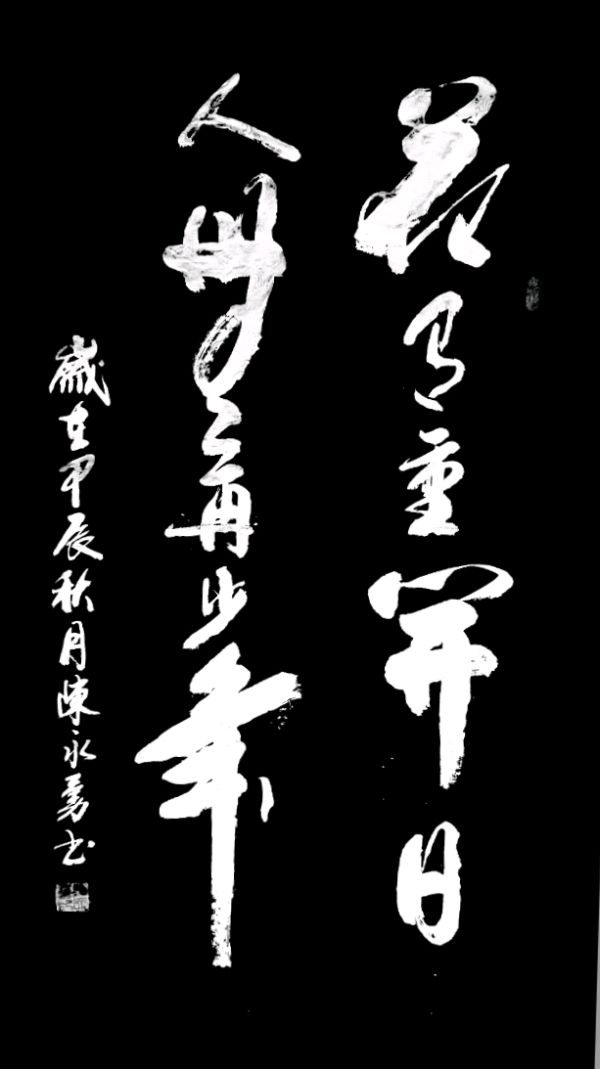 花有重開日
人無再少年
歲在甲辰秋月陳永勇书